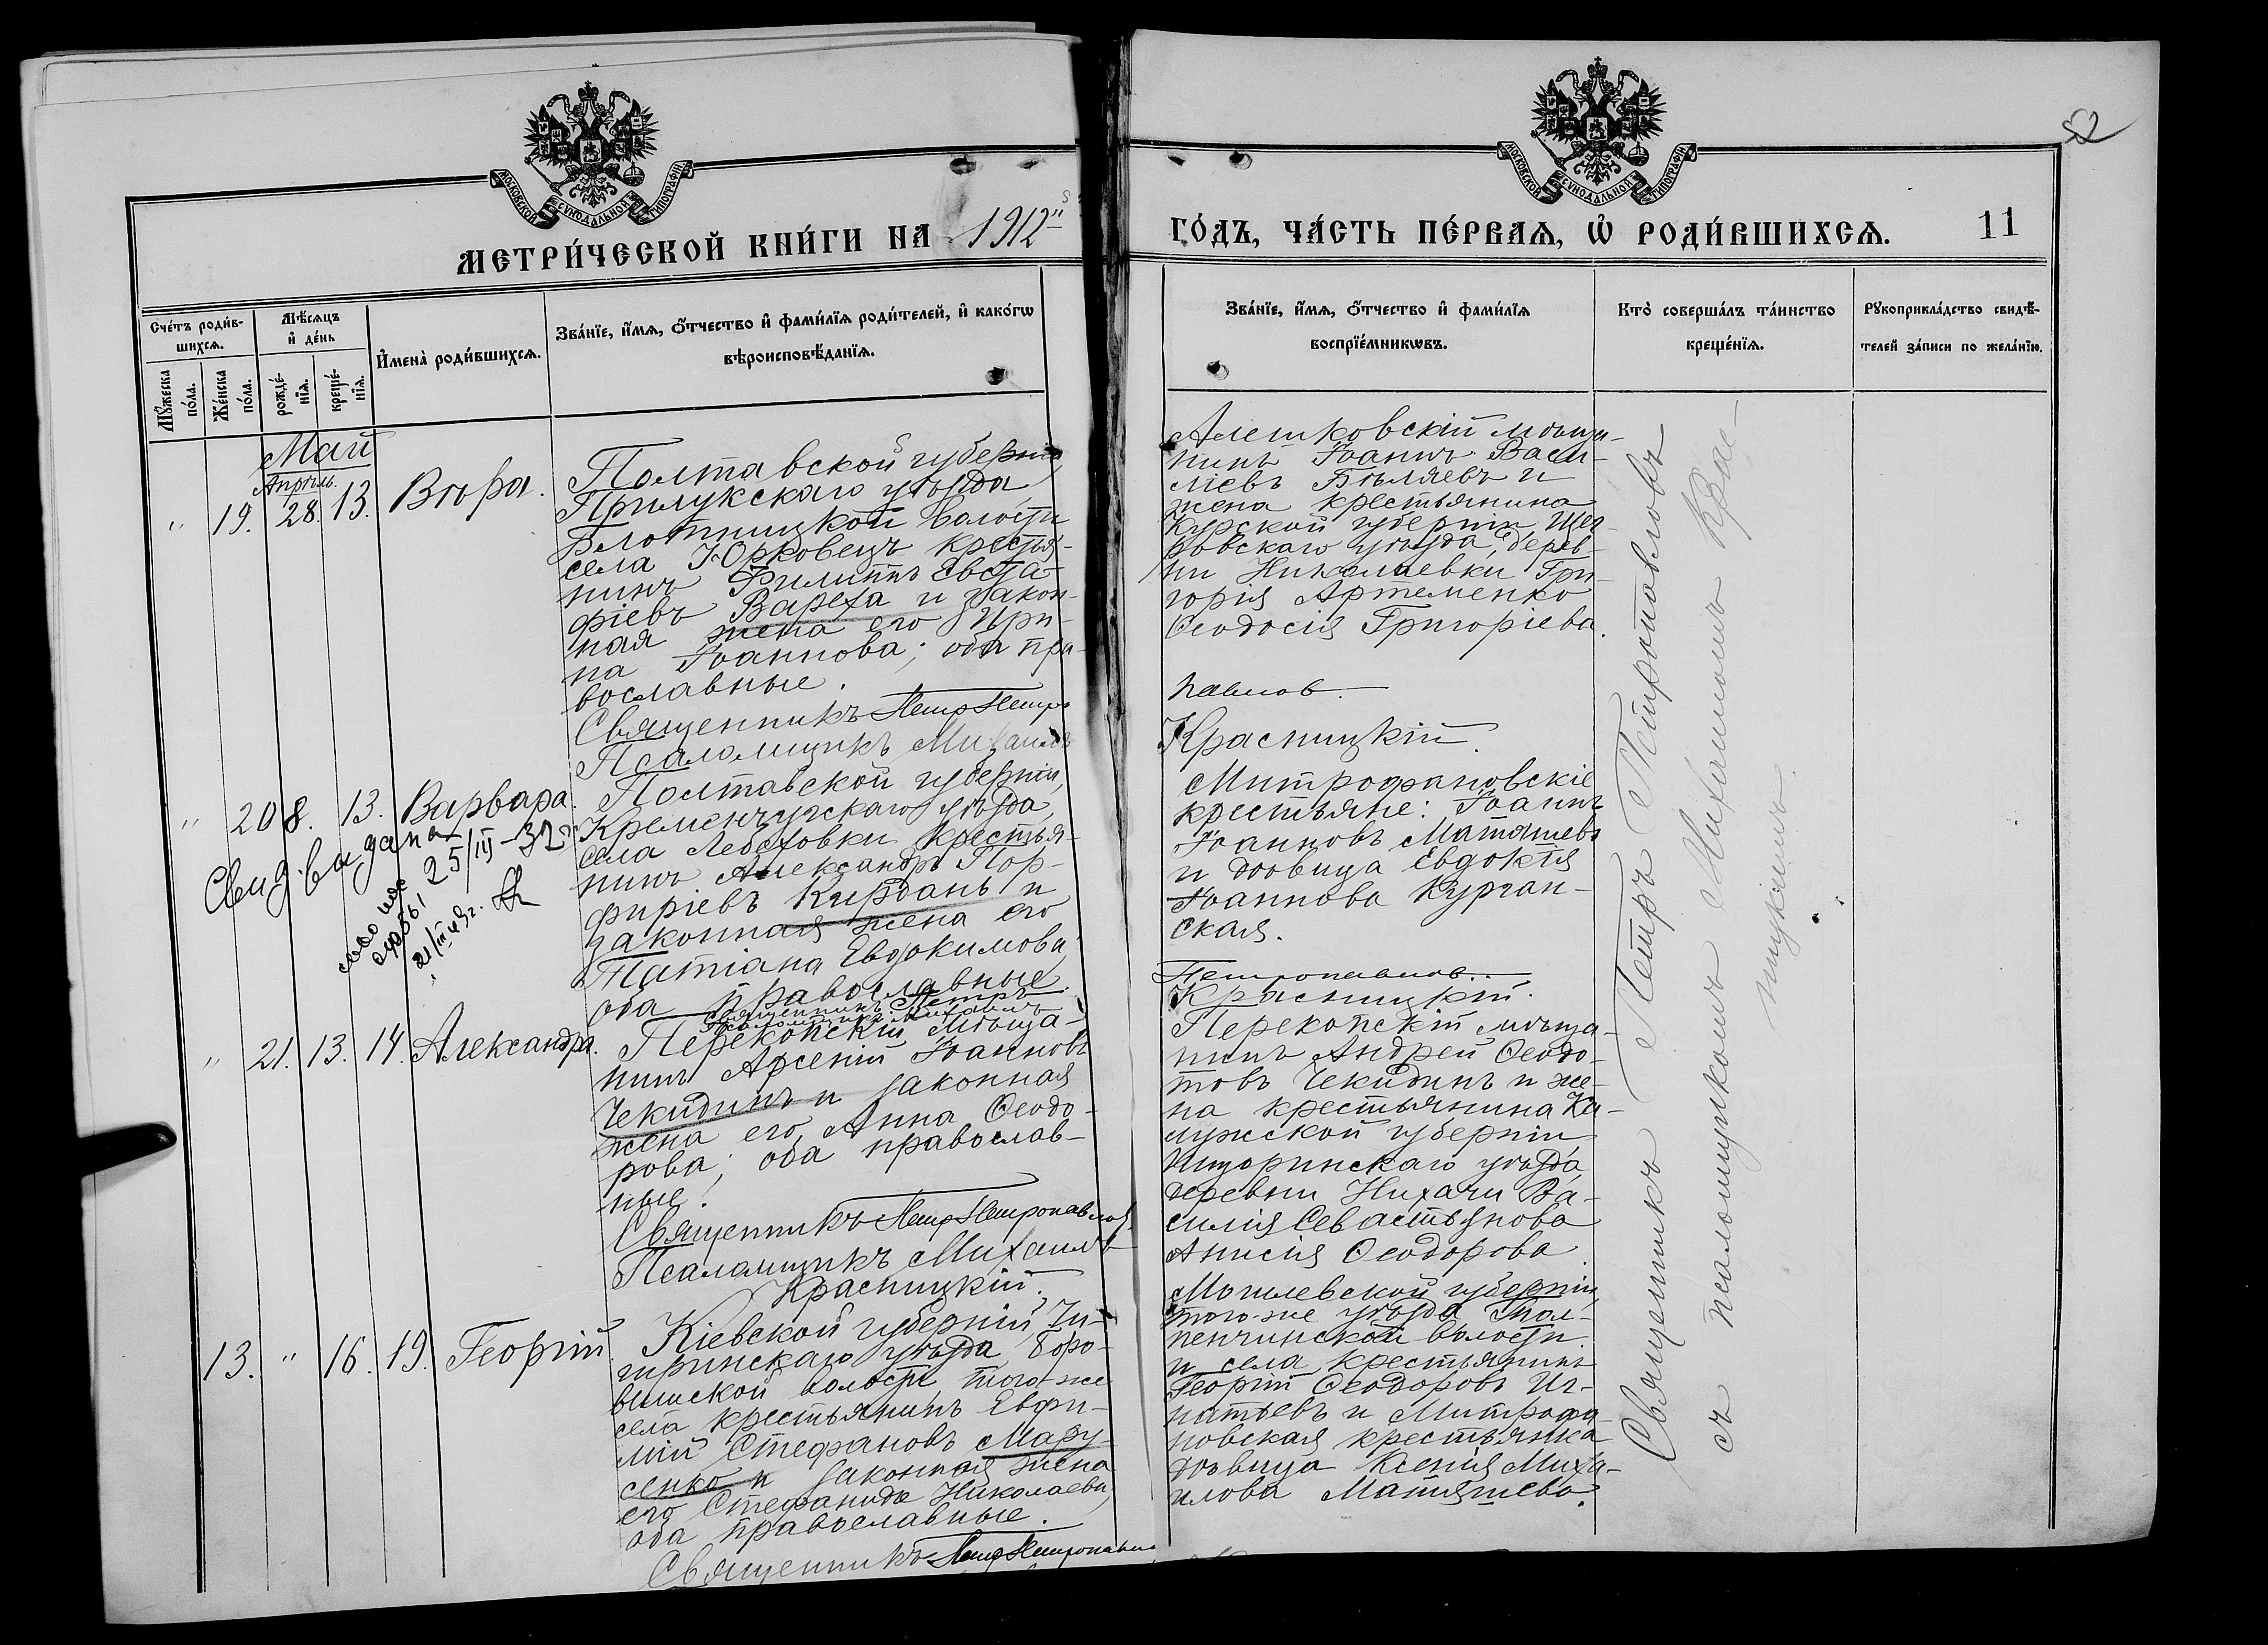 52
МОСКОВСКОЙ СѴНОДАЛЬНОЙ ТИПОГРАФІИ
МОСКОВСКОЙ СѴНОДАЛЬНОЙ ТИПОГРАФІИ
МЕТРИ́ЧЕСКОЙ КНИ́ГИ НА 1912
ГО́ДЪ, ЧА́СТЬ ПЕ́РВАѦ, Ѡ҆ РОДИ́ВШИХСѦ. 11
Сче́тъ роди́в-
шихсѧ.
Мꙋ́жеска по́ла.
Же́нска по́ла.
Мѣ́сѧцъ
и҆ де́нь
рожде́-
нїѧ.
креще́-
нїѧ.
И҆мена̀ роди́вшихсѧ.
Зва́нїе, и҆́мѧ, о҆́тчество и҆ фами́лїѧ роди́телей, и҆ како́гѡ
вѣроисповѣ́данїѧ.
Зва́нїе, и҆́мѧ, о҆́тчество и҆ фами́лїѧ
воспрїе́мникѡвъ.
Кто̀ соверша́лъ та́инство
креще́нїѧ.
Рꙋкоприкла́дство свидѣ́-
телей за́писи по жела́нїю.
Май
Апрѣль.
" 19. 28. 13. Вѣра.
Полтавской губерніи
Прилукскаго уѣзда
волости
села Юрковецъ крестья-
нинъ Филиппъ Евста-
фіевъ Вареха и закон-
ная жена его Ири-
на Іоаннова; оба пра-
вославные.
Священникъ Петръ Петро
Псаломщикъ Михаилъ
Алешковскій мѣща-
нинъ Іоаннъ Васи-
ліевъ Бѣляевъ и
жена крестьянина
Курской губерніи Щиг-
ровскаго уѣзда, дерев-
ни Николаевки Гри-
горія Артеменко
Ѳеодосія Григоріева.
павлов
Красницкій.
" 20 8. 13. Варвара.
Полтавской губерніи,
Кременчугскаго уѣзда,
села Лебеховки крестья-
нинъ Александръ Пор-
фиріевъ Кирданъ и
законная жена его
Татіана Евдокимова,
оба православные.
Священникъ Петръ
Псаломщикъ Михаилъ
Свид. выдана
25/III-32
21/III
Митрофановскіе
крестьяне: Іоаннъ
Іоанновъ Матяшевъ
и дѣвица Евдокія
Іоаннова Курган-
ская.
Петропавлов
Красницкій.
" 21. 13. 14. Александра.
Перекопскій мѣща-
нинъ Арсеній Іоанновъ
Чекидинъ и законная
жена его Анна Ѳеодо-
рова; оба православ-
ные.
Священникъ Петръ Петропавлов
Псаломщикъ Михаилъ
Красницкій.
Перекопскій мѣща-
нинъ Андрей Ѳеодо-
товъ Чекидинъ и же-
на крестьянина Ка-
лужской губерніи
уѣзда
деревни Нихачи Ва-
силія Севастьянова
Анисія Ѳеодорова
13. " 16. 19. Георгій.
Кіевской губерніи, Чи-
гиринскаго уѣзда, Боро-
вицской волости, того-же
села крестьянинъ Евфи-
мій Стефановъ Мару-
сенко и законная жена
его Стефанида Николаева,
оба православные.
Священникъ Петръ Петропавлов
Могилевской губерніи,
того-же уѣзда
волости
и села, крестьянинъ
Георгій Ѳеодоровъ Иг-
натьевъ и Митрофа-
новская крестьянка
дѣвица Ксенія Миха-
илова Матяшева.
Священникъ Петръ Петропавловъ
съ псаломщикомъ Михаиломъ Крас-
ницкимъ.